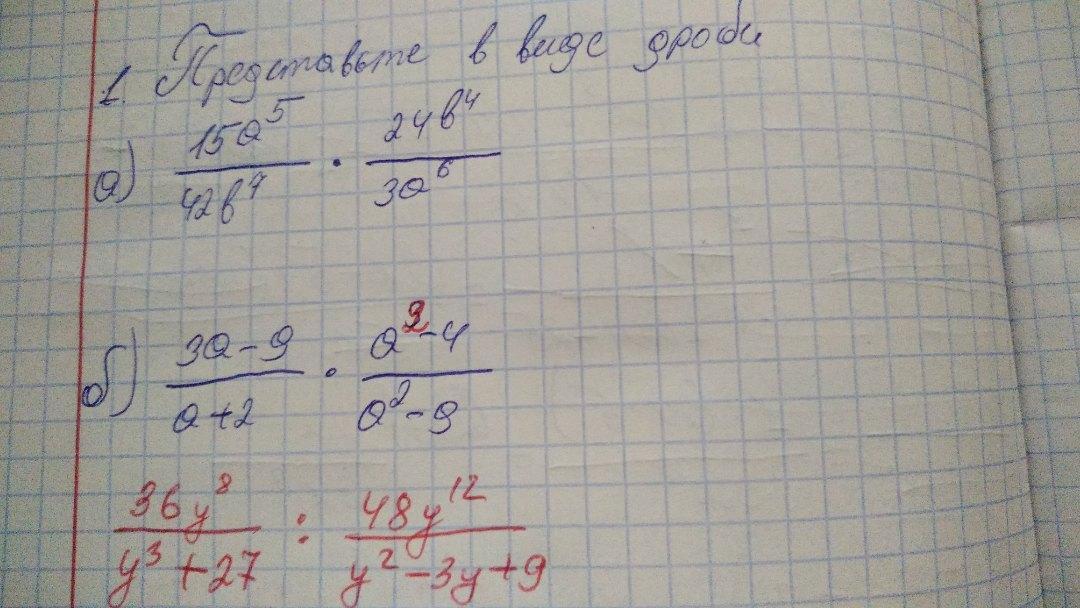 1. Представьте в виде дроби
а) 15a⁵/42b⁷ · 24b⁴/3a⁶
б) 3a-9/a+2 · a²-4/a²-9
36y⁸/y³+27 : 48y¹²/y²-3y+9